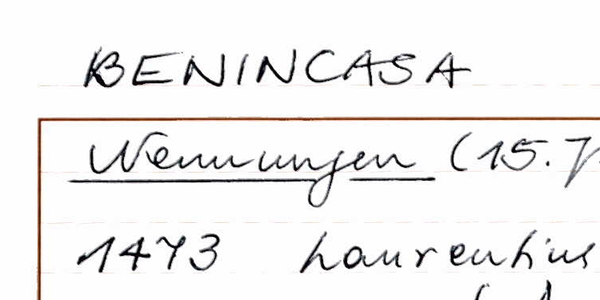 BENINCASA
Nennungen (15.J
1473 Laurentius